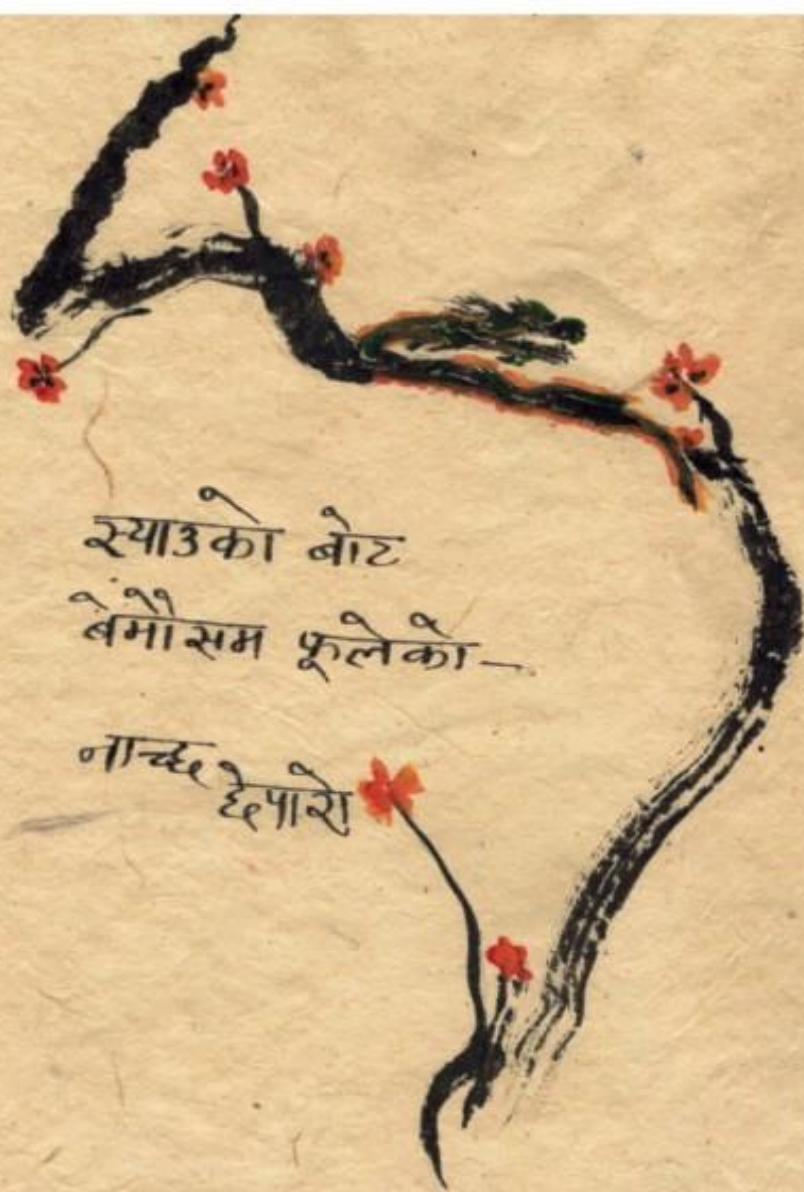 स्याउको बोट
बेमौसम फूलेको-
नाच्छ छेपारो